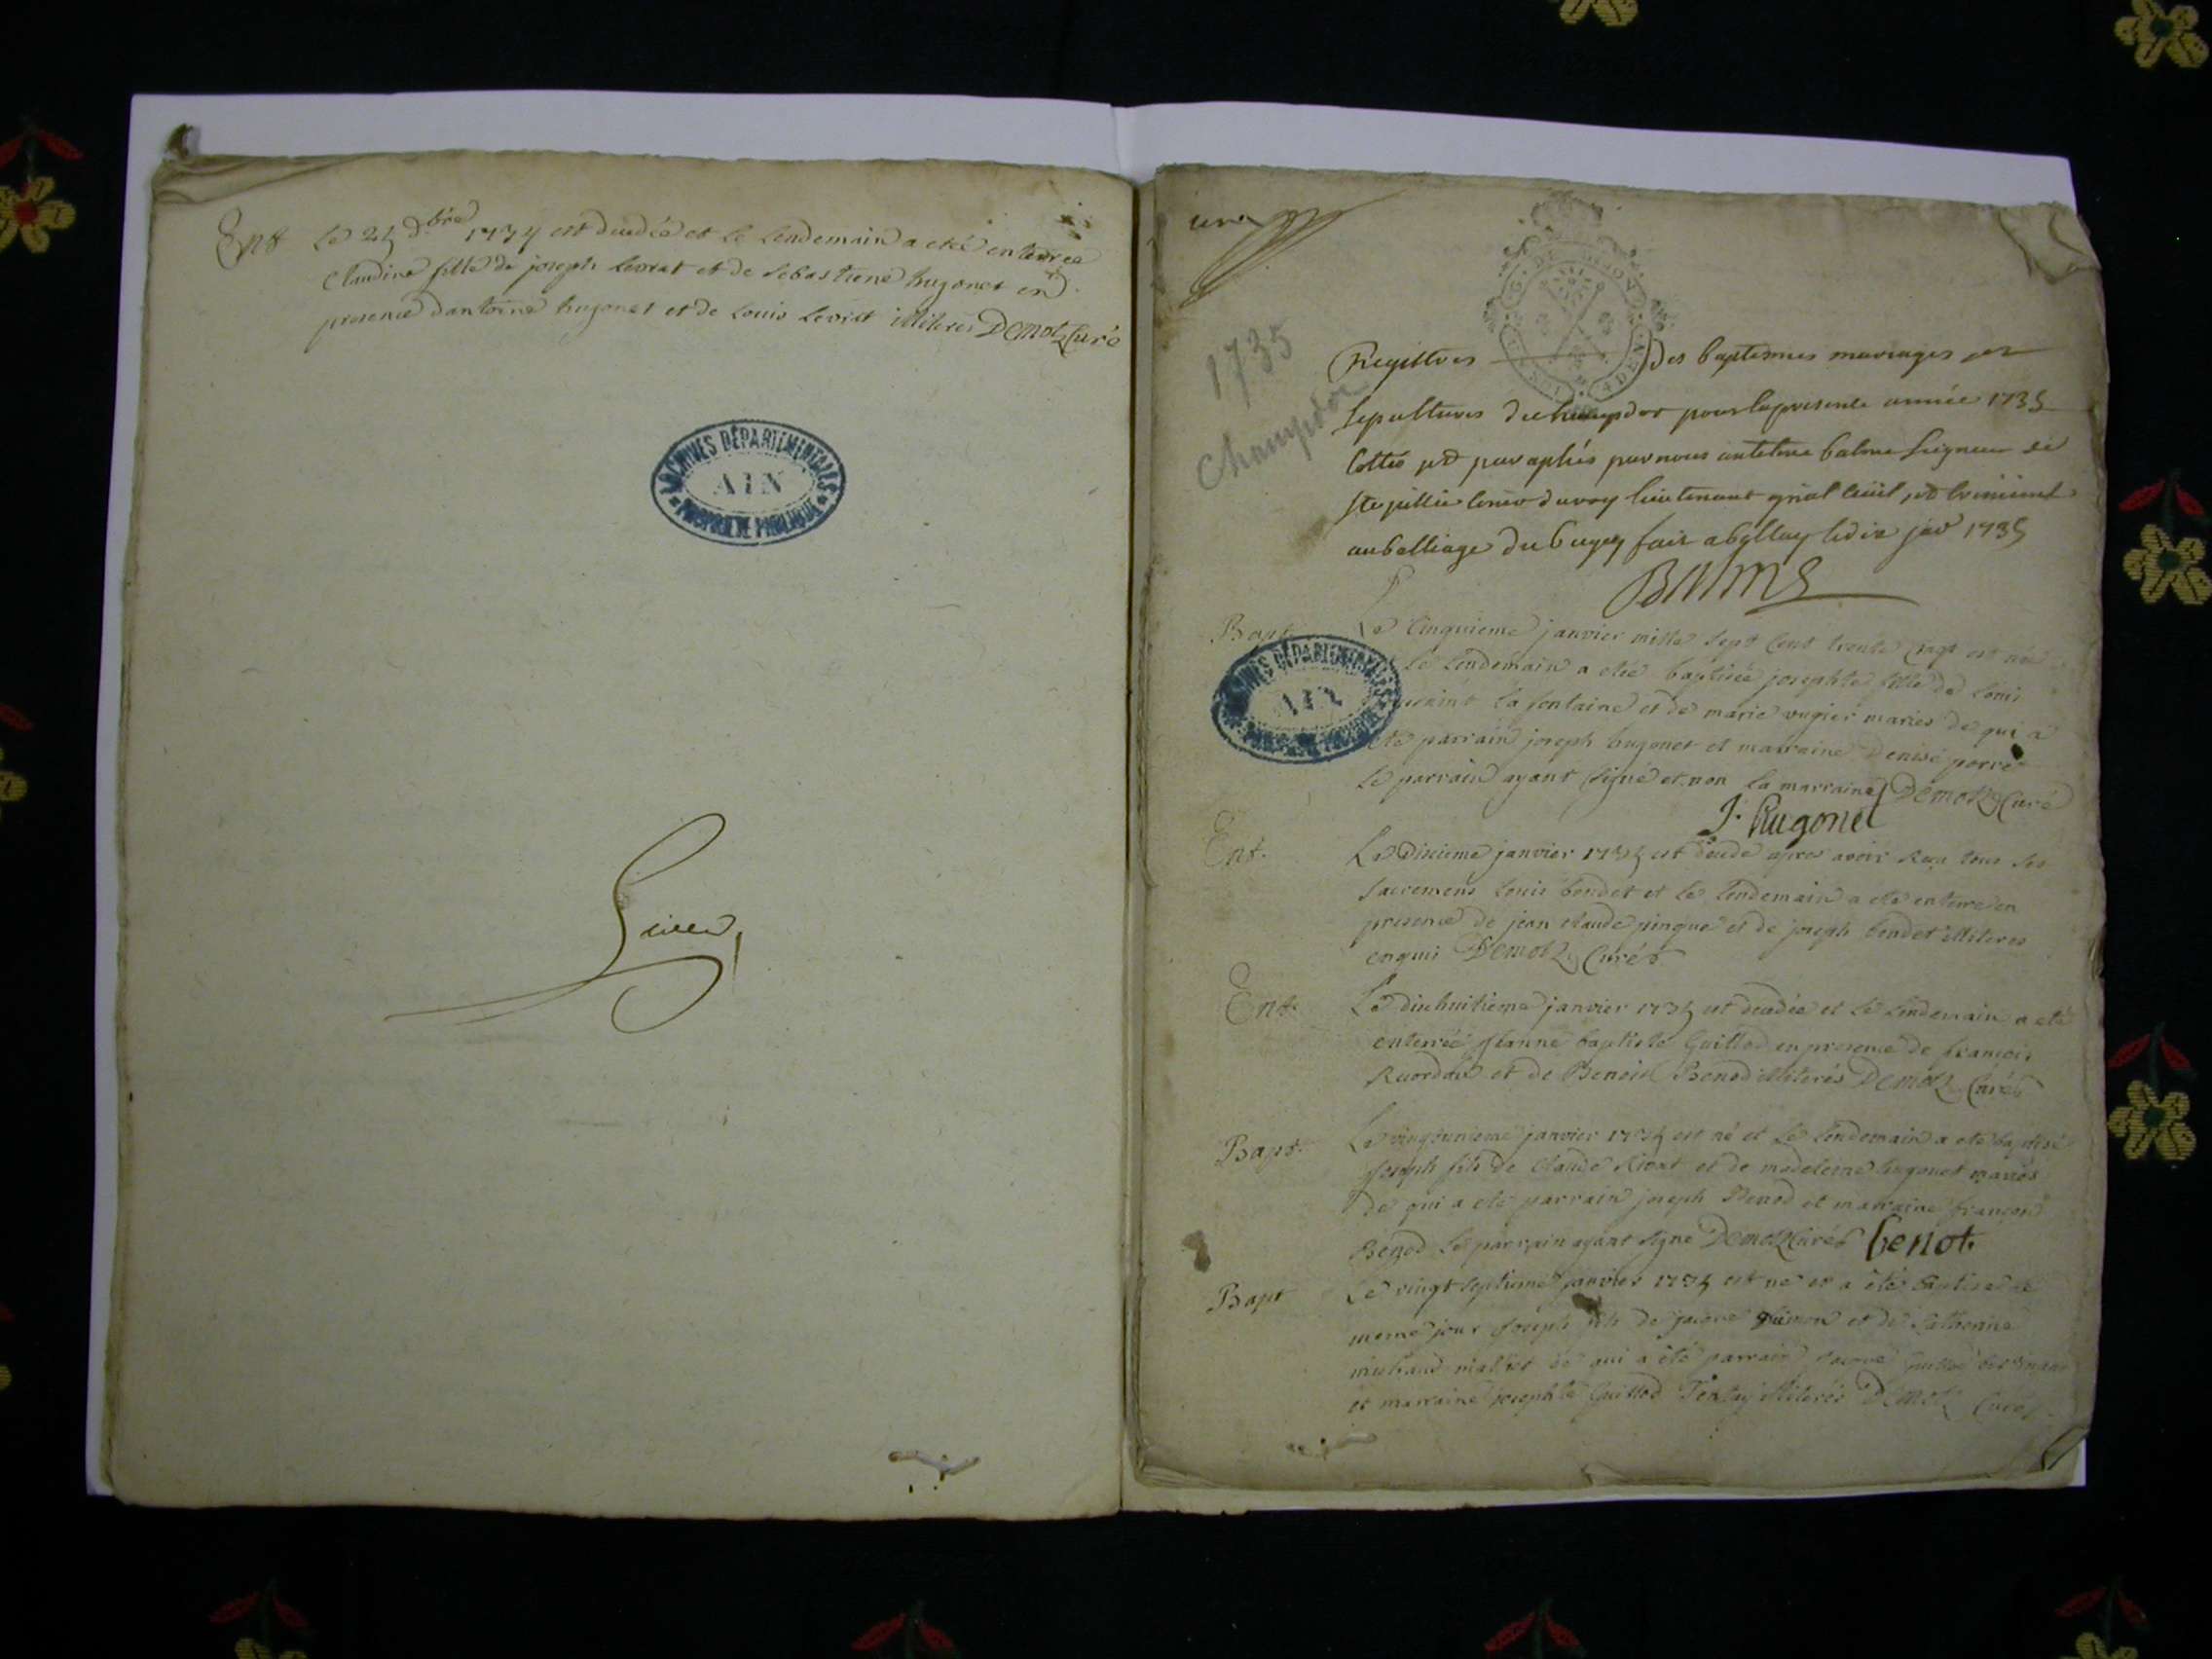 Ent Le 24 d.bre 1734 est decedée et le lendemain a eté enterrée
Claudine fille de joseph levrat et de sebastiene hugonet en
presence dantoine hugonet et de Louis Levrat illiterés Demotz Curé
ARCHIVES DÉPARTEMENTALES
AIN
PROPRIÉTÉ PUBLIQUE
une
G. DE DIJON
1735
Champdor
Registres des baptesmes mariages et
sepultures de champdor pour la presente année 1735
Cottés et paraphés par nous antelme balme seigneur de
lieutenant gnal civil et criminel
au balliage du bugey fait a bellay le dix jav 1735
Balme
Bapt Le Cinquieme janvier mille sept Cent trente Cinq est née
Le lendemain a eté baptisée josephte fille de Louis
la fontaine et de marie vugier mariés de qui a
eté parrain joseph hugonet et marraine Denise
le parrain ayant signé et non la marraine Demotz Curé
J. Hugonet
ARCHIVES DÉPARTEMENTALES
AIN
Ent. Le Dixieme janvier 1735 est decedé apres avoir Reçu tous ses
sacremens Louis bondet et le lendemain a eté enterré en
presence de jean claude pingue et de joseph bondet illiteres
enquis Demotz Curé
Ent. Le dixhuitieme janvier 1735 est decedée et le lendemain a eté
enterrée jeanne baptiste Guillod en presence de francois
et de Benoit Benod illiterés Demotz Curé
Bapt. Le vingtunieme janvier 1735 est né et le lendemain a eté baptisé
joseph fils de Claude et de madeleine hugonet mariés
de qui a eté parrain joseph Benod et marraine françoise
Benod le parrain ayant signé Demotz Curé benot.
Bapt Le vingt septieme janvier 1735 est né et a été baptisé le
meme jour joseph fils de jacque et de Catherine
mariés de qui a été parrain jacque
et marraine josephte Guillod illiterés Demotz Curé